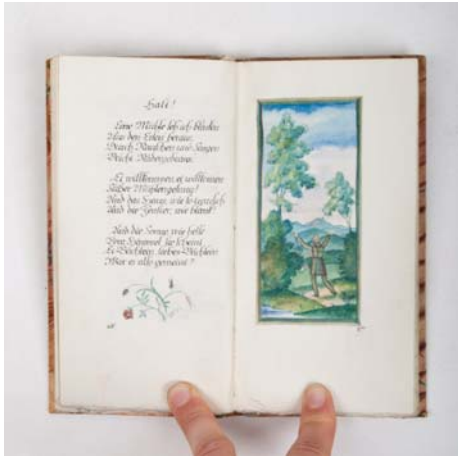 Halt!
Eine Mühle seh ich blinken
Aus den Erlen heraus,
Durch Rauschen und Singen
Bricht Rädergebraus.
Ei willkommen, ei willkommen,
Süßer Mühlengesang!
Und das Haus, wie so traulich
Und die Fenster, wie blank!
Und die Sonne, wie helle
Vom Himmel sie scheint.
Ei Bächlein, liebes Bächlein
War es also gemeint?